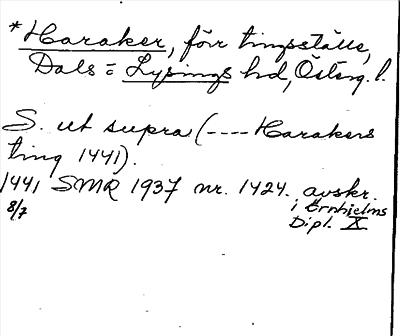 * Haraker, förr tingsställe,
Dals = Lysings hd, Österg. l.
S. ut supra (---- Harakers
ting 1441).
1441 SMR 1937 nr. 1424. avskr.
8/7 i Örnhielms
Dipl. X.